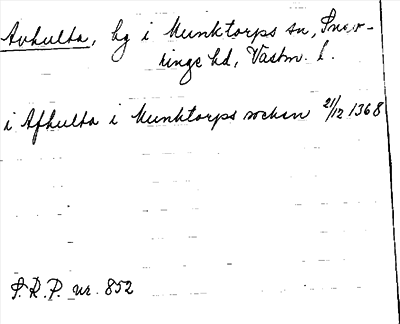 Avhulta, hg i Munktorps sn, Snev-
ringe hd, Västm. l.
i Afhulta i Munktorps sochen 21/12 1368
S.R.P. nr. 852